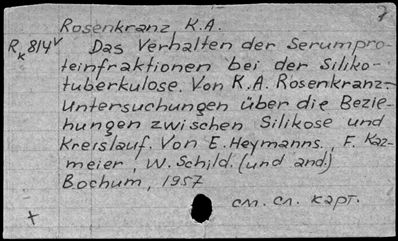 7
Rosenkranz K.A.
Rk 814v Das Verhalten der Serumpro-
teinfraktionen bei der Siliko-
tuberkulose. Von K.A. Rosenkranz.-
Untersuchungen über die Bezie-
hungen zwischen Silikose und
Kreislauf. Von E. Heymanns, F. Kaz-
meier, W. Schild. (und and.)
Bochum, 1957
см. сл. карт.
+